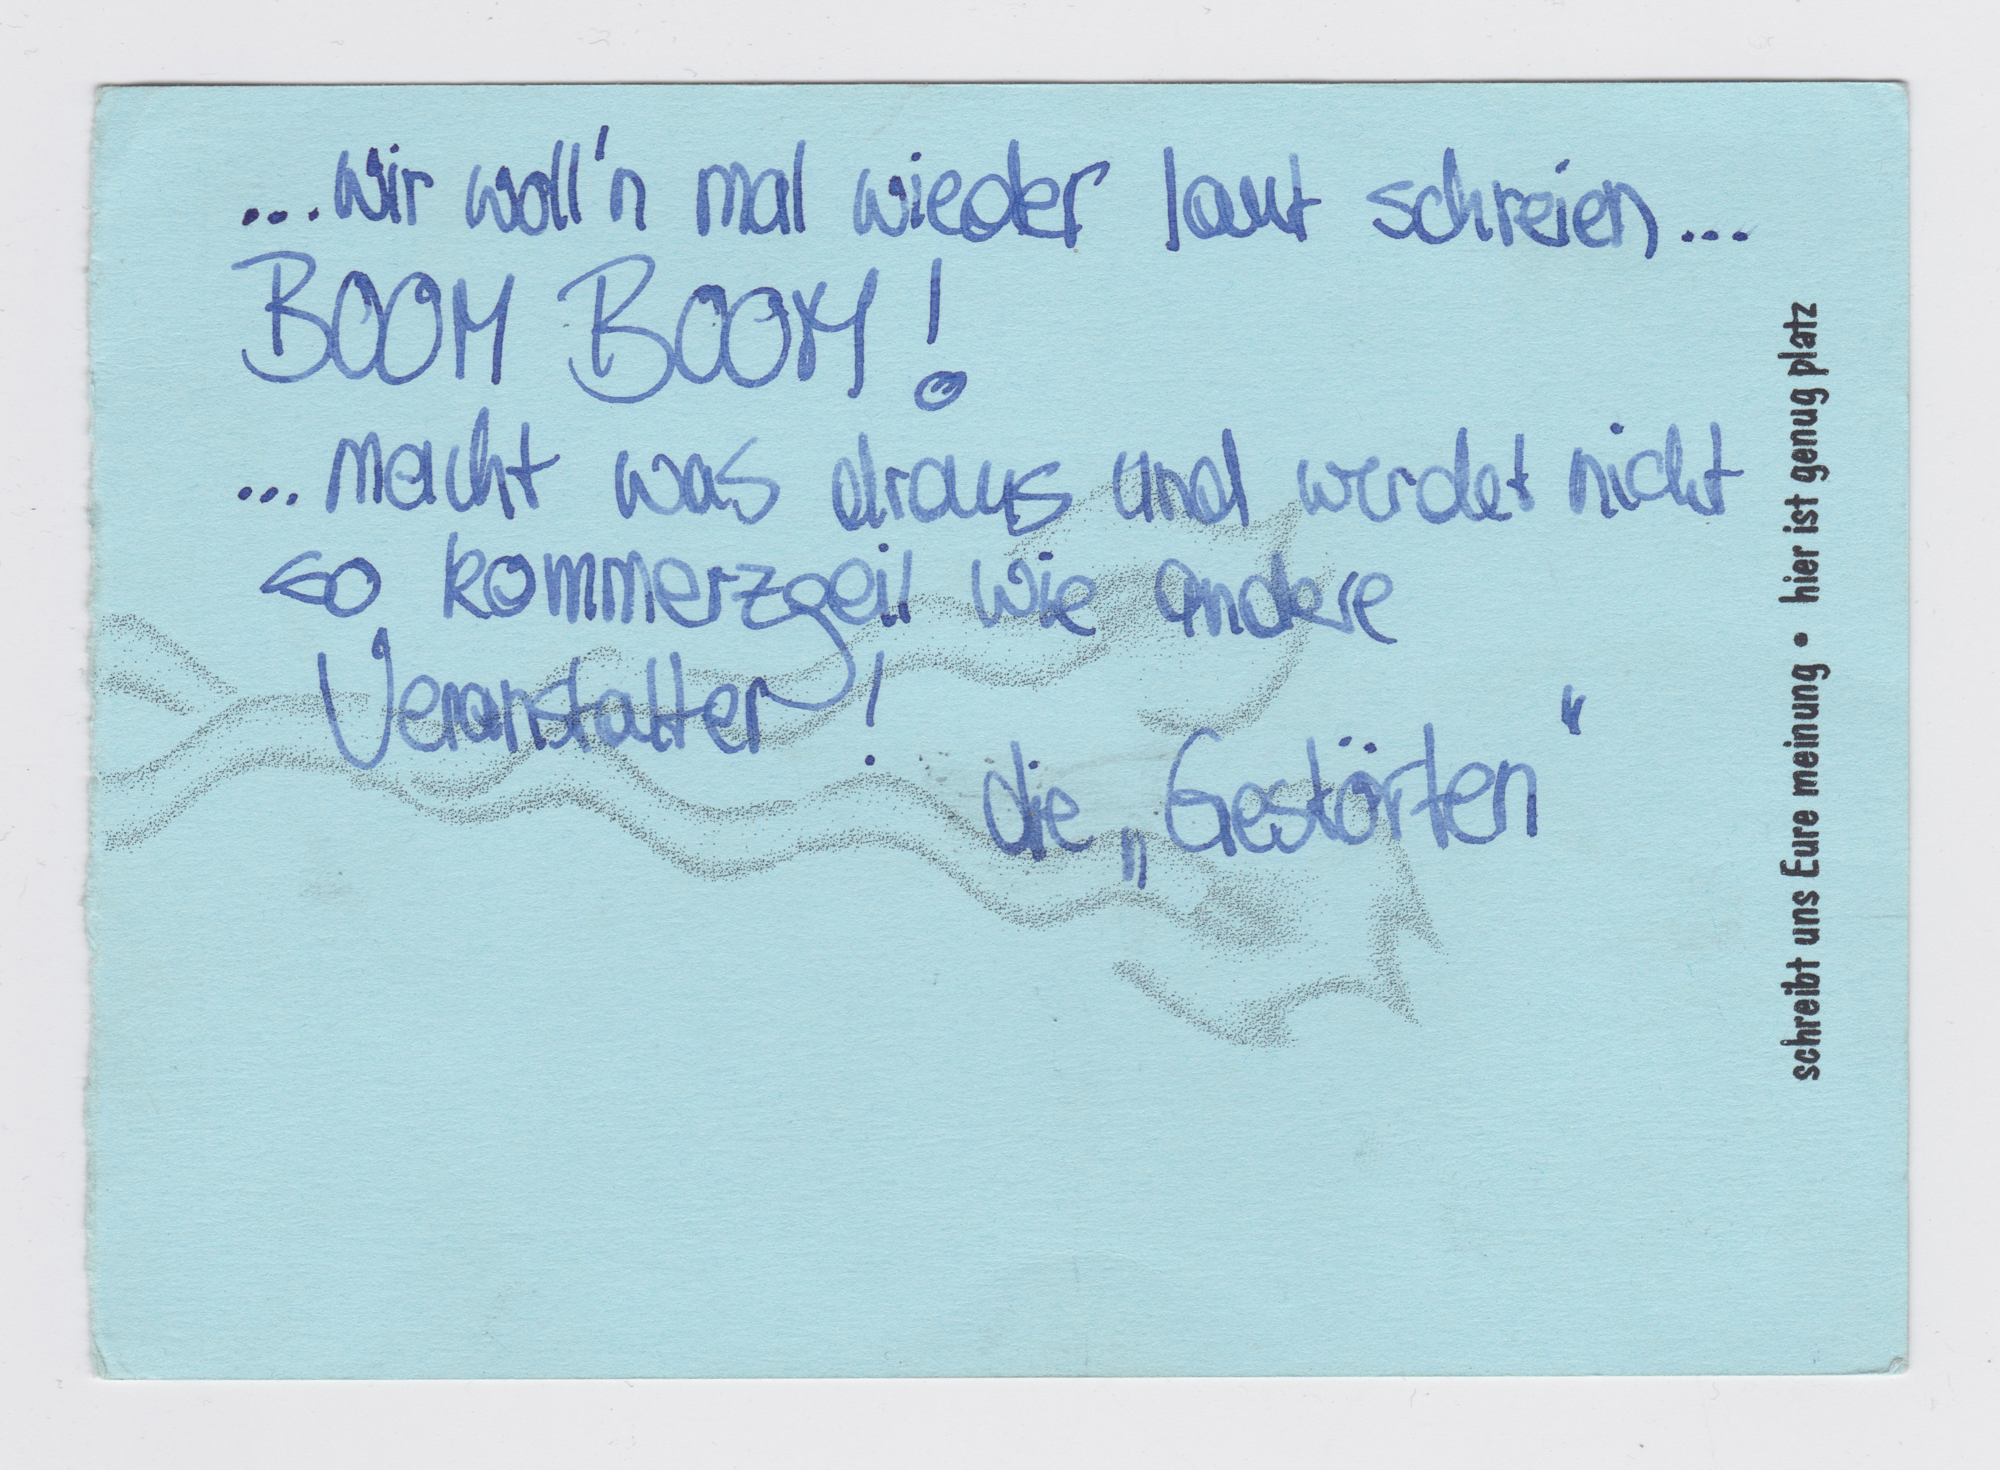 ...wir woll'n mal wieder laut schreien...
BOOM BOOM!
...macht was draus und werdet nicht
so kommerzgeil wie andere
Veranstalter!
die „Gestörten“
schreibt uns Eure meinung • hier ist genug platz